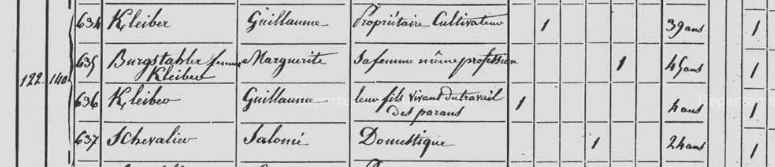 634 Kleiber Guillaume Propriétaire Cultivateur 1 39 ans 1
122 140 635 Burgstahler femme Kleiber Marguerite Sa femme même profession 1 45 ans 1
636 Kleiber Guillaume leur fils vivant du travail des parans 1 4 ans 1
637 Schevalier Salomé Domestique 1 24 ans 1